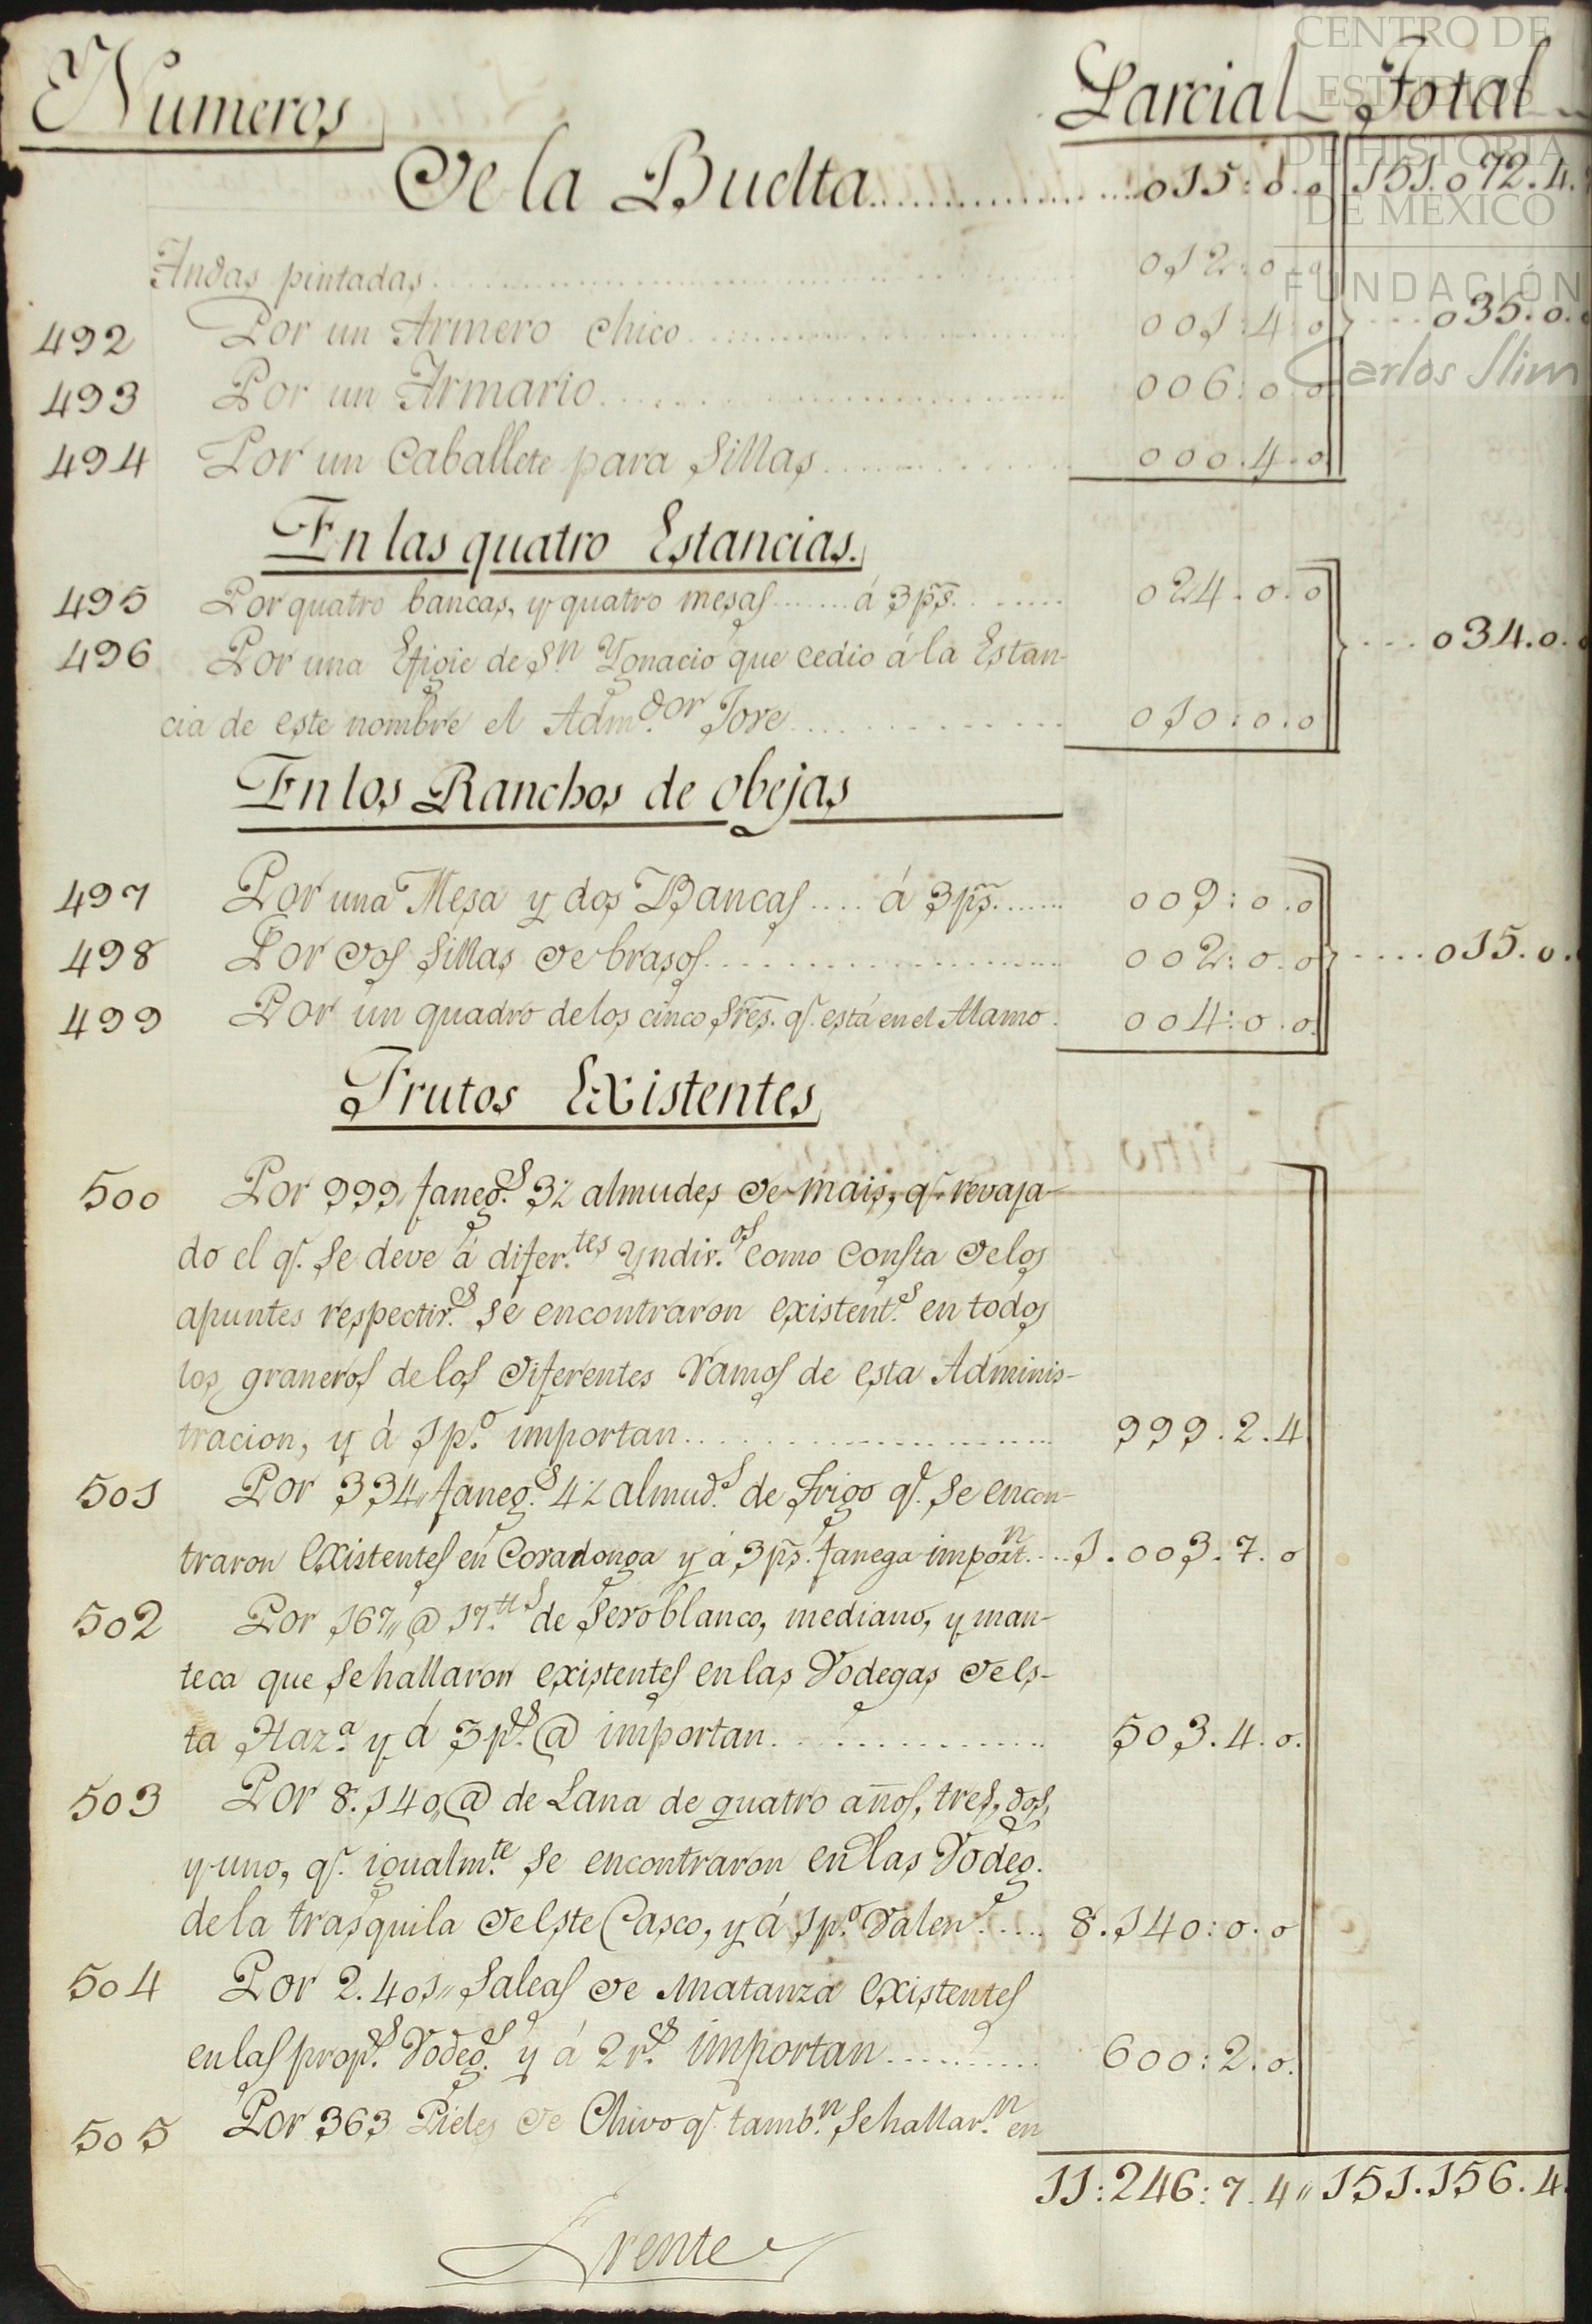 CENTRO DE
ESTUDIOS
DE HISTORIA
DE MÉXICO
FUNDACIÓN
Carlos Slim
Numeros Parcial Total
De la Buelta 015:0.0 151.072.4.
Andas pintadas 012:0.0
492 Por un Armero chico 001:4.0 035.0.0
493 Por un Armario 006:0.0
494 Por un Caballete para Sillas 000.4.0
En las quatro Estancias.
495 Por quatro bancas, y quatro mesas á 3 ps. 024.0.0
496 Por una Efigie de Sn. Ygnacio que cedio á la Estan- 034.0.0
cia de este nombre el Adm.dor Jove 010:0.0
En los Ranchos de obejas
497 Por una Mesa y dos Bancas á 3 ps. 009:0.0
498 Por dos Sillas de brasos 002:0.0 015.0.0
499 Por un quadro de los cinco Sres. q.e está en el Alamo. 004:0.0
Frutos Existentes
500 Por 999,, faneg.s 3½ almudes de mais, q.e revaja-
do el q.e se deve á difer.tes Yndiv.os como consta de los
apuntes respectiv.s se encontraron existent.s en todos
los graneros de los diferentes ramos de esta Adminis-
tracion, y á 1 p.o importan 999.2.4
501 Por 334,, faneg.s 4½ almud.s de Trigo q.e se encon-
traron existentes en Covadonga y á 3 ps. fanega import.n 1.003.7.0
502 Por 167,, @ 17.tts de Sevo blanco, mediano, y man-
teca que se hallaron existentes en las Vodegas de es-
ta Haz.a y á 3 p.s @ importan 503.4.0.
503 Por 8.140,, @ de Lana de quatro años, tres, dos,
y uno, q.e igualm.te se encontraron en las Vodeg.
de la trasquila de este Casco, y á 1 p.o valen 8.140:0.0
504 Por 2.401,, Saleas de Matanza existentes
en las prop.s Vodeg.s y á 2 r.s importan 600:2.0.
505 Por 363 Pieles de Chivo q.e tamb.n se hallar.n en
11:246:7.4,, 151.156.4.
Frente